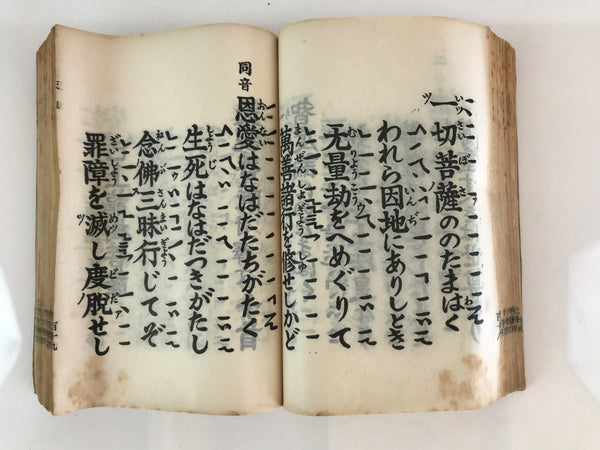 一切菩薩ののたまはく
われら因地にありしとき
无量劫をへめぐりて
萬善諸行を修せしかど
同音
恩愛はなはだたちがたく
生死はなはだつきがたし
念佛三昧行じてぞ
罪障を滅し度脱せし